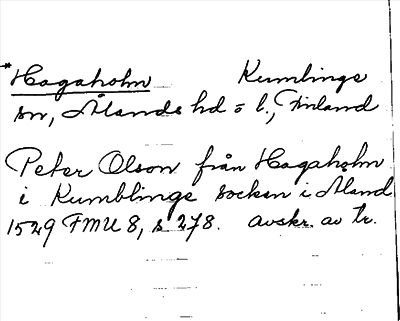 *Hagaholm Kumlinge
sn, Ålands hd o l., Finland
Peter Olson från Hagaholm
i Kumblinge socken i Åland
1529 FMU 8, s 278. avskr. av tr.